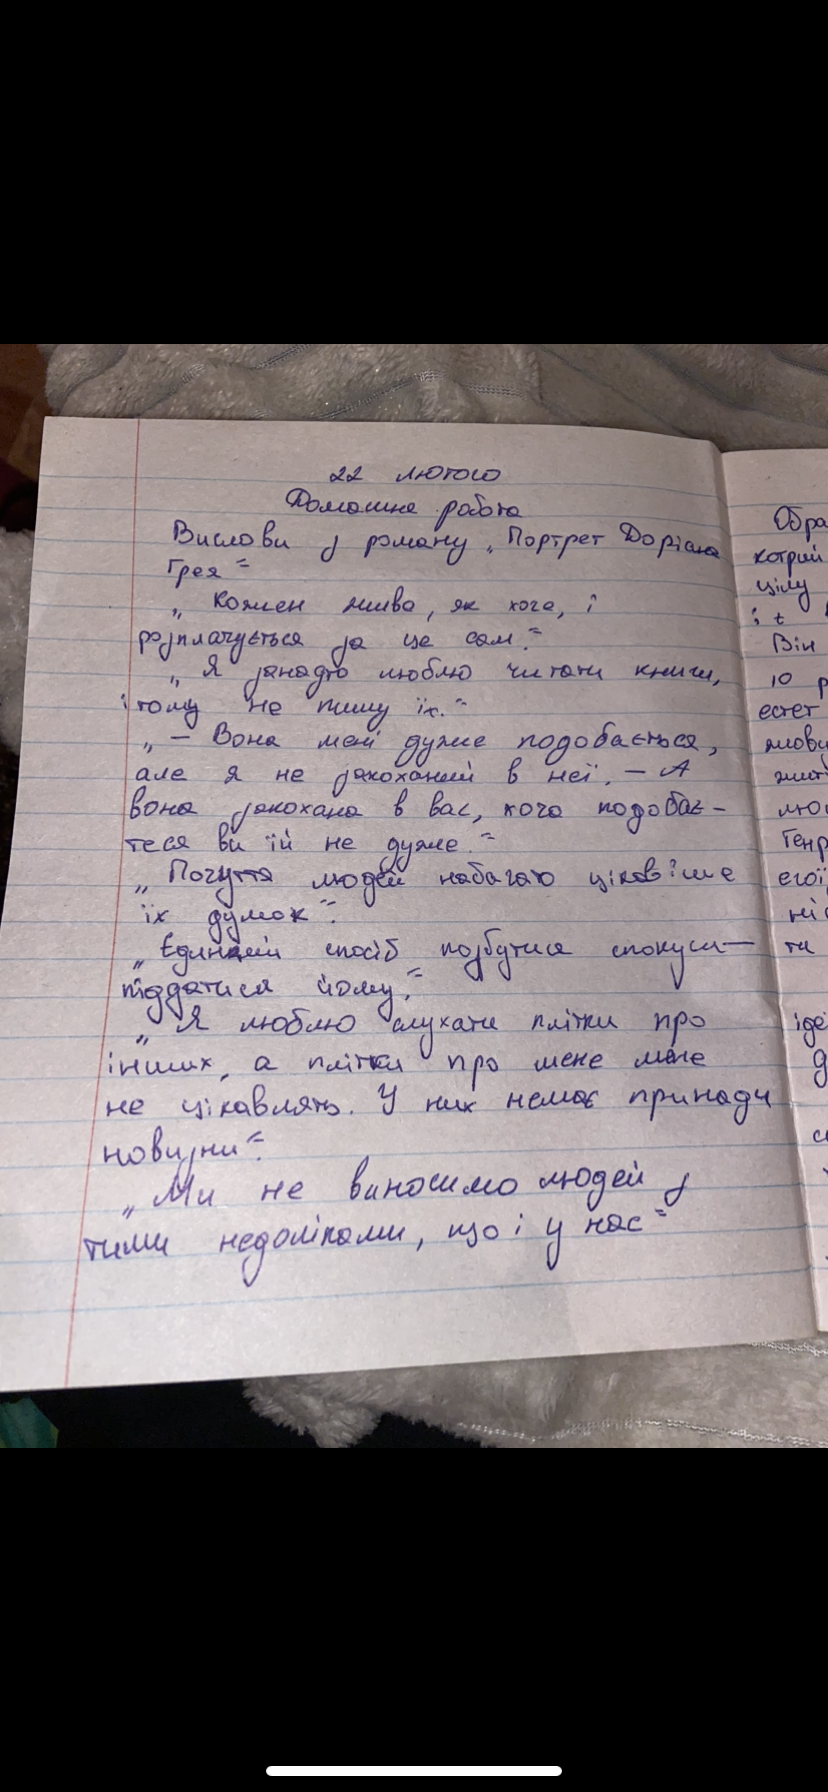 22 лютого
Домашня робота
Вислови з роману „Портрет Доріана
Грея"
„Кожен живе, як хоче, і
розплачується за це сам."
„Я занадто люблю читати книги,
і тому не пишу їх."
„— Вона мені дуже подобається,
але я не закоханий в неї. — А
вона закохана в вас, хоча подобає-
теся ви їй не дуже."
„Почуття людей набагато цікавіше
їх думок".
„Єдиний спосіб позбутися спокуси —
піддатися йому."
„Я люблю слухати плітки про
інших, а плітки про мене мене
не цікавлять. У них немає принади
новизни".
„Ми не виносимо людей з
тими недоліками, що і у нас"
Обра
котрий
цілу
і t
Він
10 р
естет
мову
житт
лю
Генр
егої
ніс
ти
ідеї